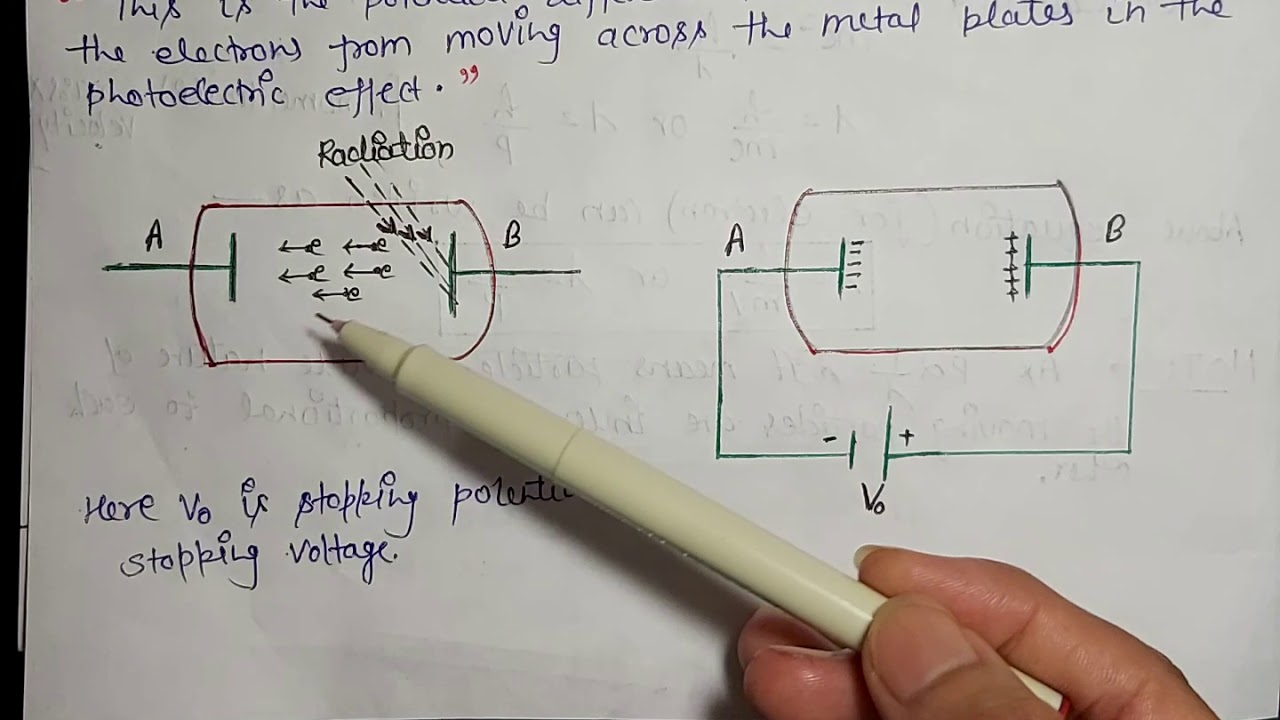 " This is the potential
the electrons from moving across the metal plates in the
photoelectric effect. "
Radiation
A
B
e e
e e
e
A
B
- +
V₀
Here V₀ is stopping
stopping voltage.